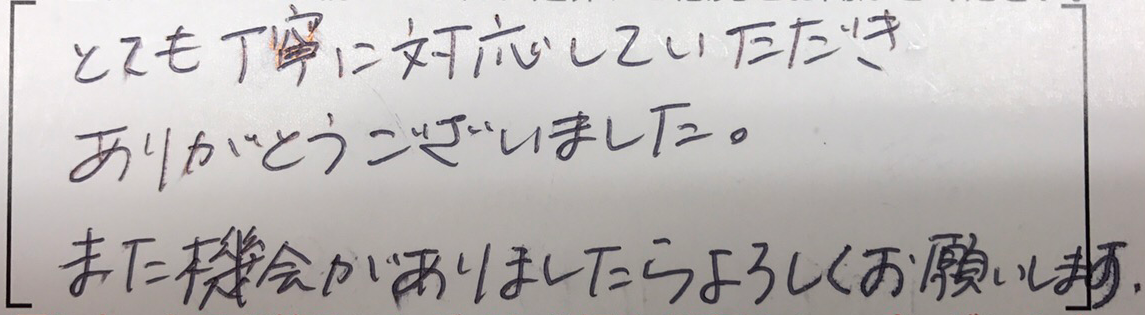 とても丁寧に対応していただき
ありがとうございました。
また機会がありましたらよろしくお願いします.